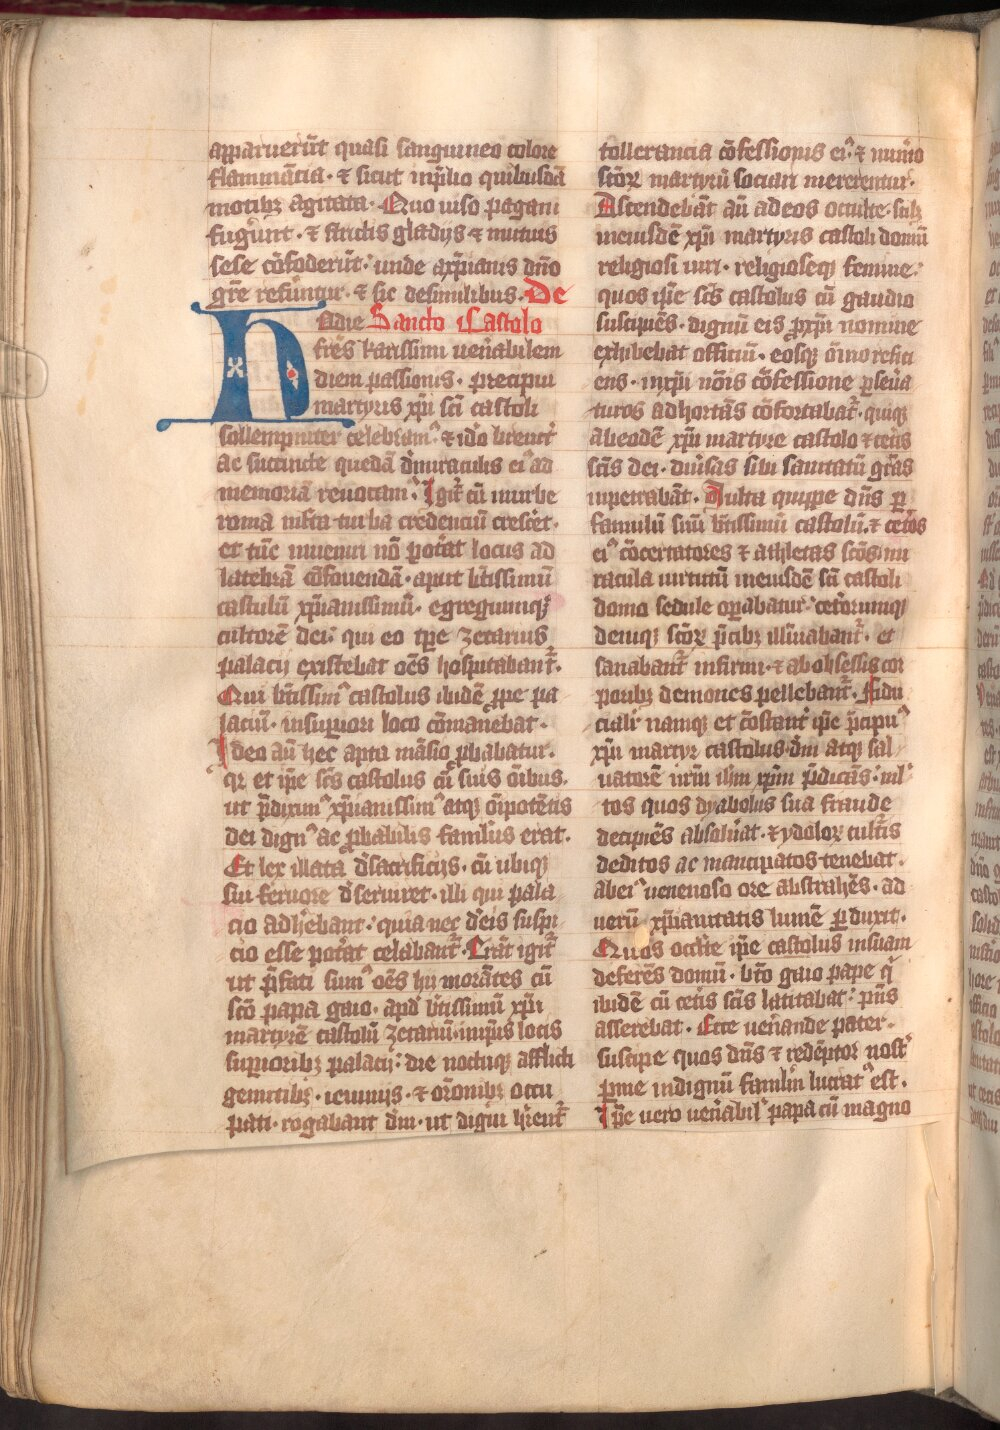 apparuerūt quasi sanguineo colore
flammātia · ⁊ sicut in p̄lio quibusdā
motibꝫ agitata · Quo uiso pagani
fugiūt · ⁊ strictis gladijs ⁊ mutuis
sese cōfoderūt · unde a xp̄ianis dn̄o
gr̄e referūtur · ⁊ sic de similibus · De
Hodie Sancto Castolo
fr̄es karissimi uen̄abilem
diem passionis · precipui
martyris xp̄i sc̄i castoli
sollempniter celebram᷒ · ⁊ ido breuit̄
ac succincte quedā d̄ miraculis ei᷒ ad
memoriā reuocam᷒ · Igit̄ cū in urbe
roma m̄ta turba credenciū cresc̄et ·
et tūc inueniri nō pot̄at locus ad
latebrā cōfouendā · aput bt̄issimū
castulū xp̄ianissimū · egregiumqꝫ
cultorē dei · qui eo tp̄e zetarius
palacij existebat oēs hospitabant̄ ·
Qui bt̄issim᷒ castolus ibidē ꝓpe pa
laciū · in suꝑiori loco cōmanebat ·
Ideo aū hec apta māsio ꝓbabatur ·
qr et ip̄e sc̄s castolus cū suis oībus ·
ut p̄dixim᷒ xp̄ianissim᷒ atqꝫ oīpotētis
dei dign᷒ ac ꝓbabilis famul᷒ erat ·
Et lex illata d̄ sacrificijs · cū ubiqꝫ
sui feruore d̄seruiret · illi qui pala
cio adh̄ebant · quia nec d̄ eis suspi
cio esse pot̄at celabant̄ · Erāt igit̄
ut p̄fati sum᷒ oēs hij morātes cū
sc̄o papa gaio · apd̄ bt̄issimū xp̄i
martyrē castolū zetariū · in ip̄is locis
suꝑioribꝫ palacij · die noctuqꝫ afflicti
gemitibꝫ · ieiunijs · ⁊ or̄onibꝫ occu
pati · rogabant dm̄ · ut digni h̄rent̄
tollerancia cōfessionis ei᷒ · ⁊ num̄o
sc̄orꝝ martyrū sociari mererentur ·
Ascendebāt aū ad eos occulte · scilꝫ
in eiusdē xp̄i martyris castoli domū
religiosi uiri · religioseqꝫ femine ·
quos ip̄e sc̄s castolus cū gaudio
suscipiēs · dignū eis ꝓ xp̄i nomine
exhibebat officiū · eosqꝫ om̄o refici
ens · in xp̄i nōis cōfessione ꝑseu̅a
turos adhortās cōfortabat̄ · quiqꝫ
ab eodē xp̄i martyre castolo ⁊ cet̄is
sc̄is dei · diu̅sas sibi sanitatū gr̄as
inpetrabāt · Multa quippe dn̄s ꝑ
famulū suū bt̄issimū castolū · ⁊ cet̄os
ei᷒ cōcertatores ⁊ athletas sc̄os mi
racula uirtutū in eiusdē sc̄i castoli
domo sedule oꝑabatur · cet̄orumqꝫ
deniqꝫ sc̄orꝝ p̄cibꝫ illūinabant̄ · et
sanabant̄ infirmi · ⁊ ab obsessis cor
poribꝫ demones pellebant̄ · Fidu
ciali᷒ namqꝫ et cōstant̄ ip̄e p̄cipu᷒
xp̄i martyr castolus · dm̄ atqꝫ sal
uatorē nr̄m ih̄m xp̄m p̄dicās · ml̄
tos quos dyabolus sua fraude
decipiēs absoluat · ⁊ ydolorꝝ cult̄is
deditos ac mancipatos tenebat ·
ab ei᷒ uenenoso ore abstrahēs · ad
uerū xp̄ianitatis lumē ꝑduxit ·
Quos occl̄te ip̄e castolus in suam
deferēs domū · bt̄o gaio pape q̄
ibidē cū cet̄is sc̄is latitabat · p̄ns
asserebat · Ecce uen̄ande pater ·
suscipe quos dn̄s ⁊ redēptor nost̄
ꝑ me indignū famlm̄ lucrat᷒ est ·
Ip̄e uero uen̄abil᷒ papa cū magno